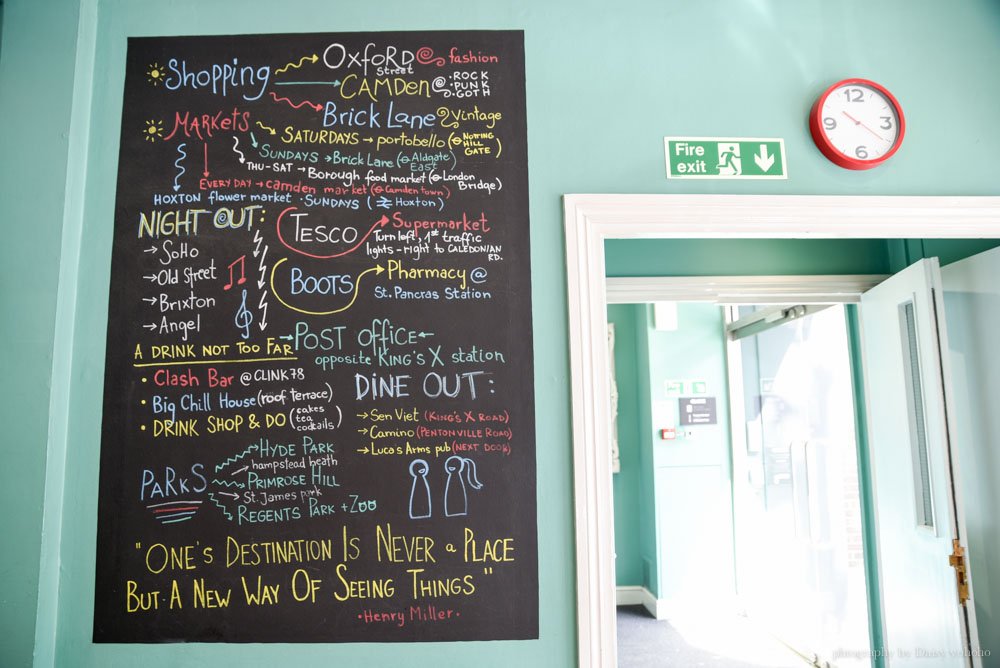 Shopping
OxfORD
Street
fashion
CAMDen
·ROCK
·PUNK
·GOTH
Brick Lane
Vintage
MARKETS
SATURDAYS → portobello (⊖ NOTTING
HILL
GATE)
SUNDAYS → Brick Lane (⊖ Aldgate
East)
THU-SAT → Borough food market (⊖ London
Bridge)
EVERY DAY → camden market (⊖ Camden town)
HOXTON flower market · SUNDAYS ( Hoxton)
NIGHT OUT:
→ SoHo
→ Old Street
→ Brixton
→ Angel
TESCO
Supermarket
Turn left, 1st traffic
lights - right to CALEDONIAN
RD.
BOOTS
Pharmacy @
St. Pancras Station
→ POST Office ←
opposite KING'S X station
A DRINK NOT TOO FAR
· Clash Bar @ CLINK78
· Big Chill House (roof terrace)
· DRINK SHOP & DO (cakes
tea
cocktails)
DINE OUT:
→ Sen Viet (KING'S X ROAD)
→ Camino (PENTONVILLE ROAD)
→ Lucas Arms pub (NEXT DOOR)
PARKS
HYDE PARK
hampstead heath
PRIMROSE HILL
St. James park
REGENTS PARK + Zoo
"ONE'S DESTINATION IS NEVER a PLACE
BUT A NEW WAY OF SEEING THINGS"
·Henry Miller·
Fire
exit
12
3
6
9
photography by Daisy yohoho